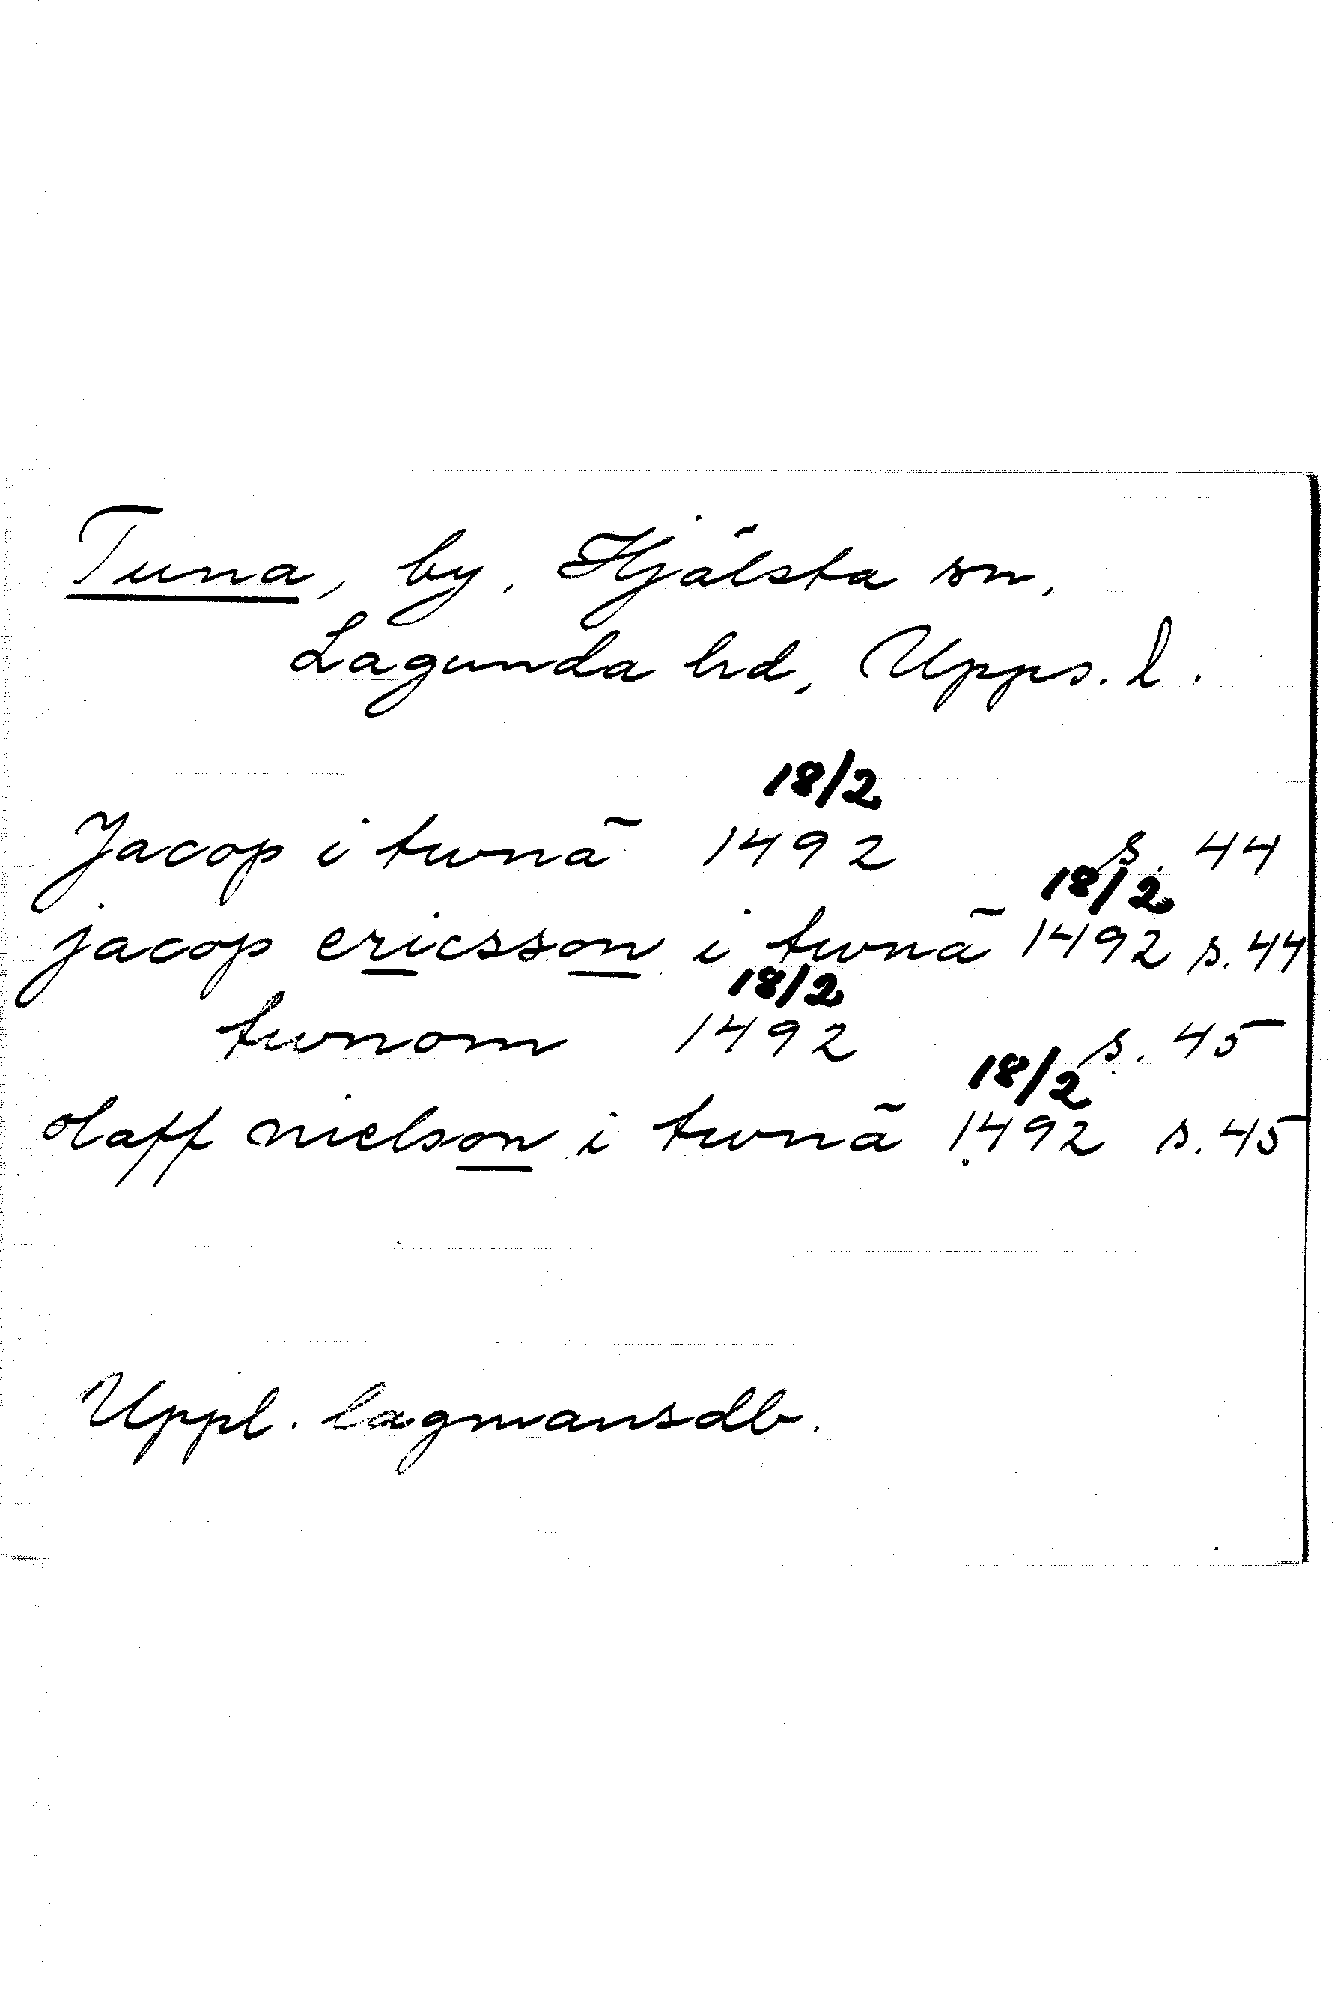 Tuna, by, Hjälsta sn,
Lagunda hd, Upps. l.
18/2
Jacop i twnā 1492 s. 44
18/2
jacop ericsson i twnā 1492 s. 44
18/2
twnom 1492 s. 45
18/2
olaff nielson i twnā 1492 s. 45
Uppl. lagmansdb.